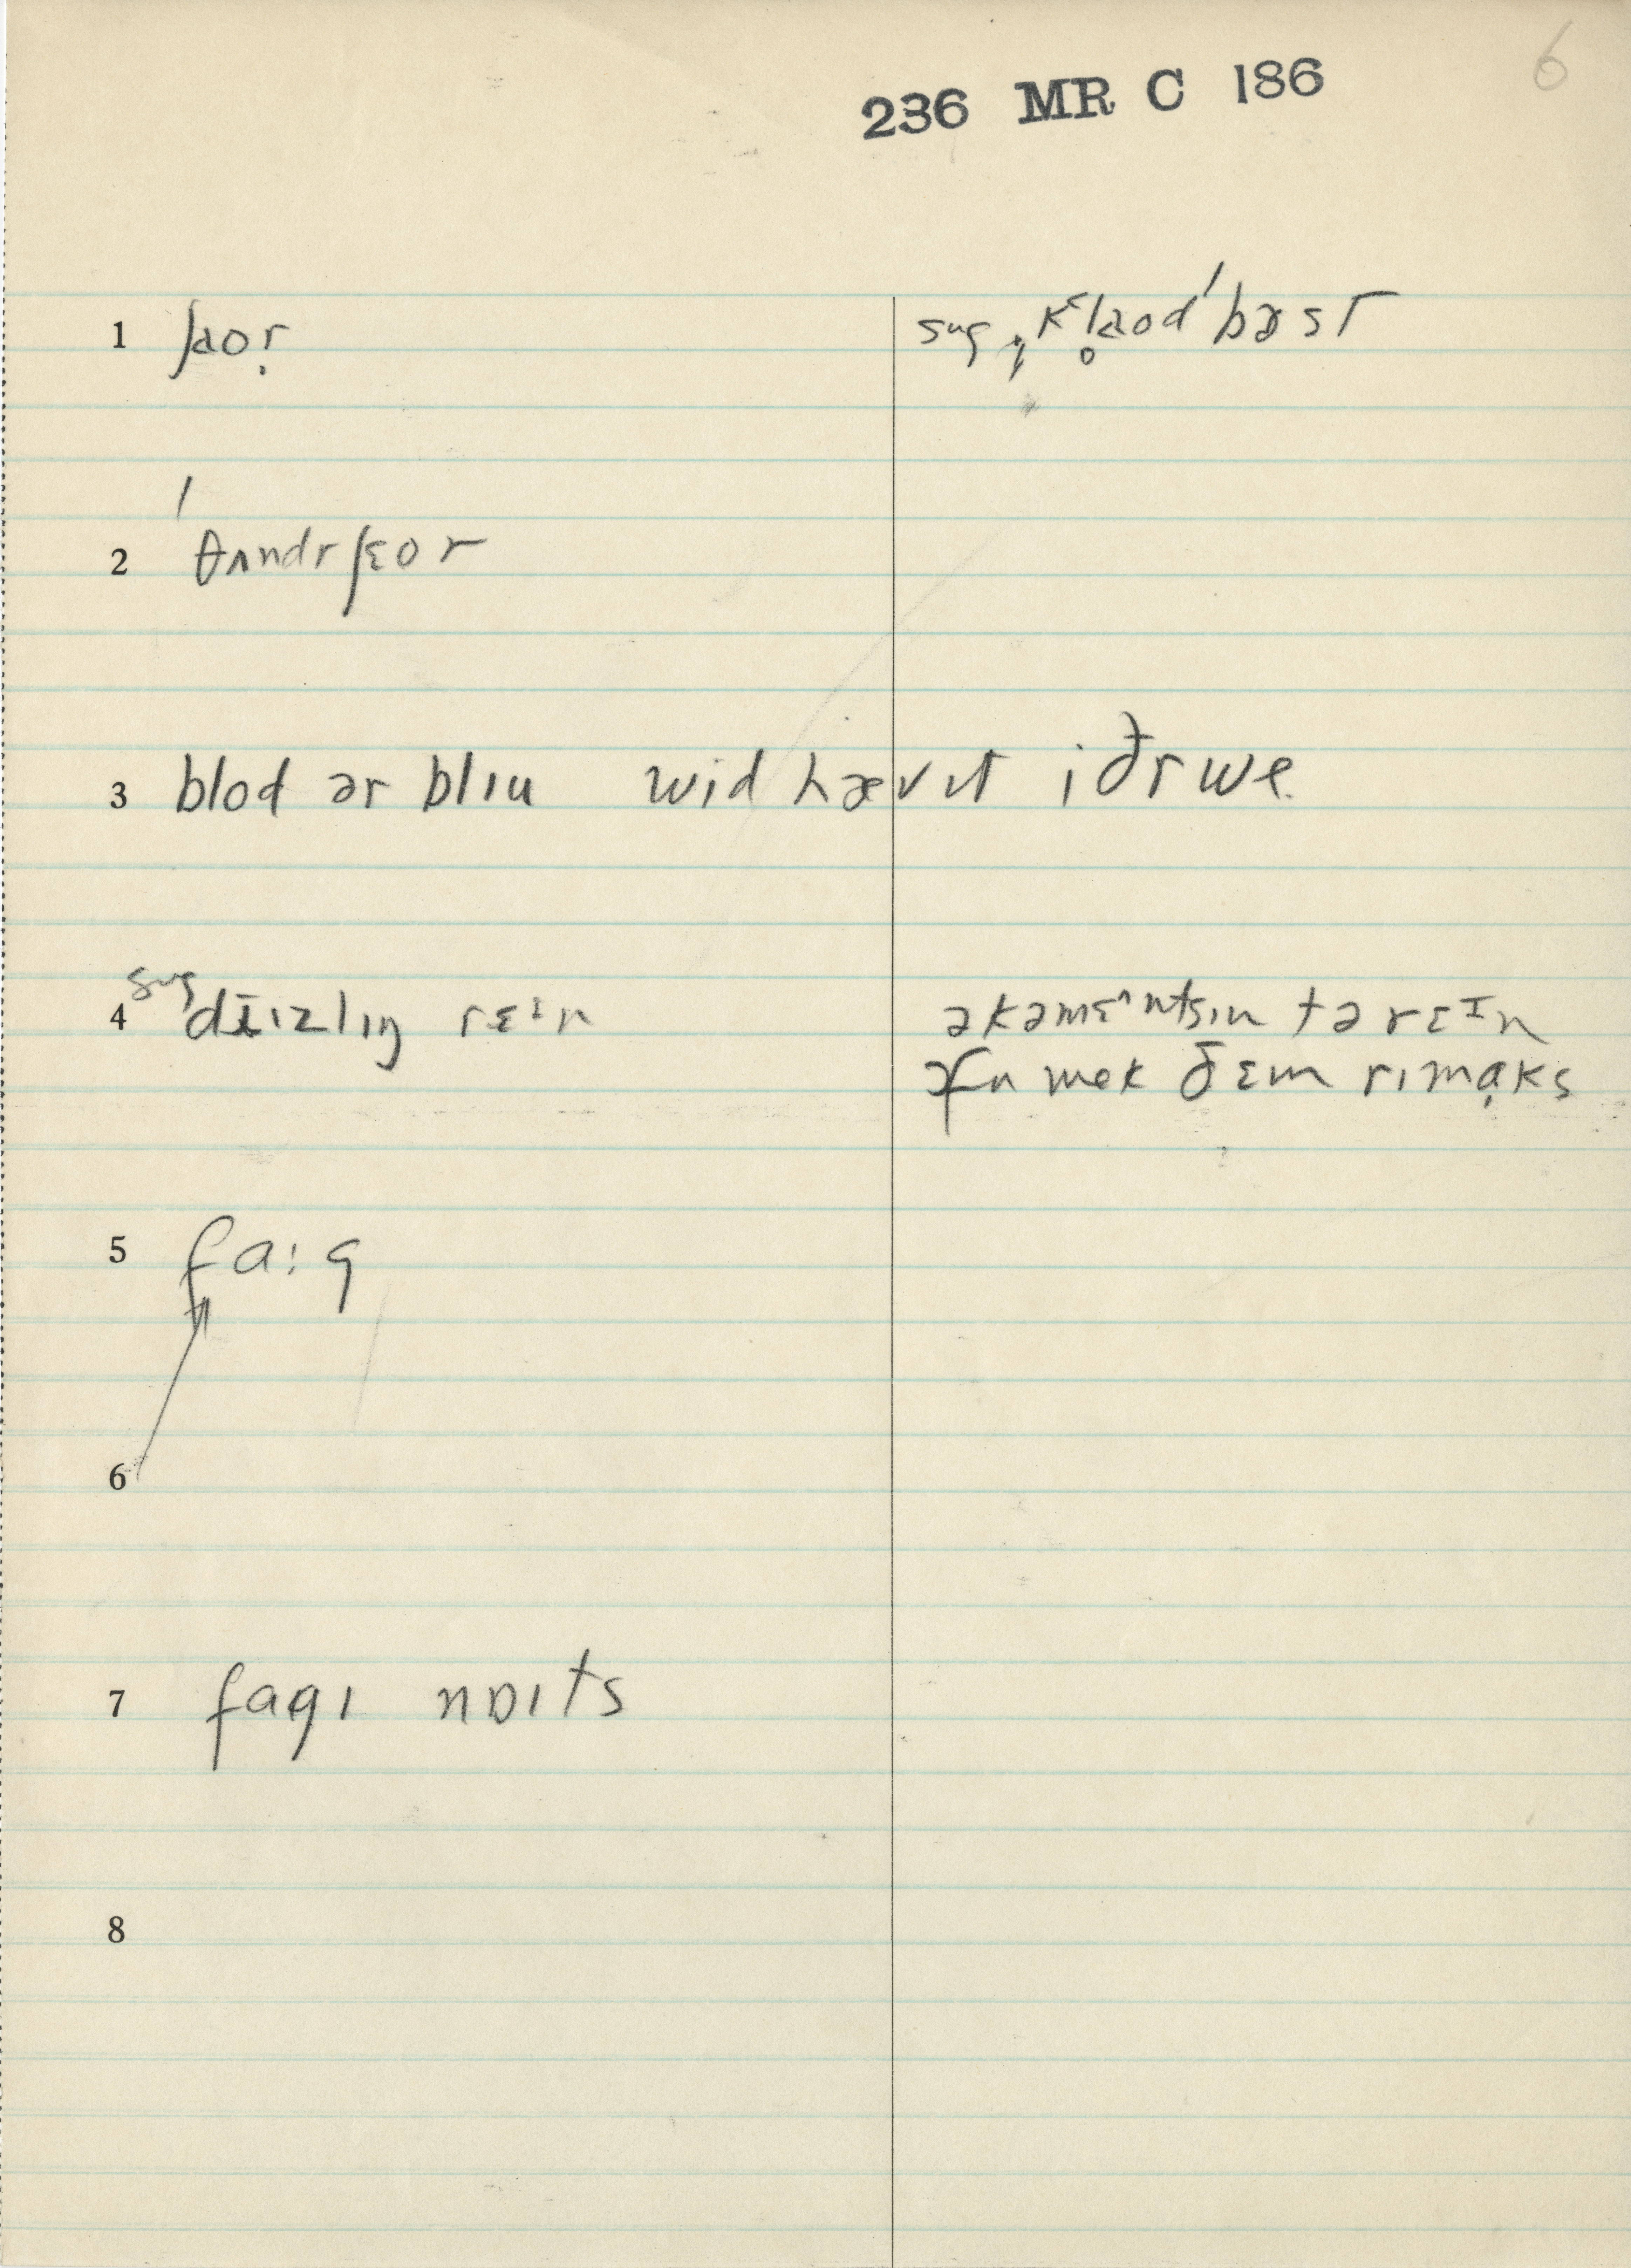 6
236 MR C 186
1 ʃaor̩ sug ˌkʻl̥aod'bɚst
2 'θʌndrʃɛor
3 blod ər blɪu wid hævɪt iðr we
4 sug dɪ̄ɪzlɪŋ rɛɪn əkəmɛ^ntsɪn tə rɛɪn
ɚfn mek ðɛm rɪmɑ̣ks
5 fa:g
6
7 fagɪ nɒɪts
8